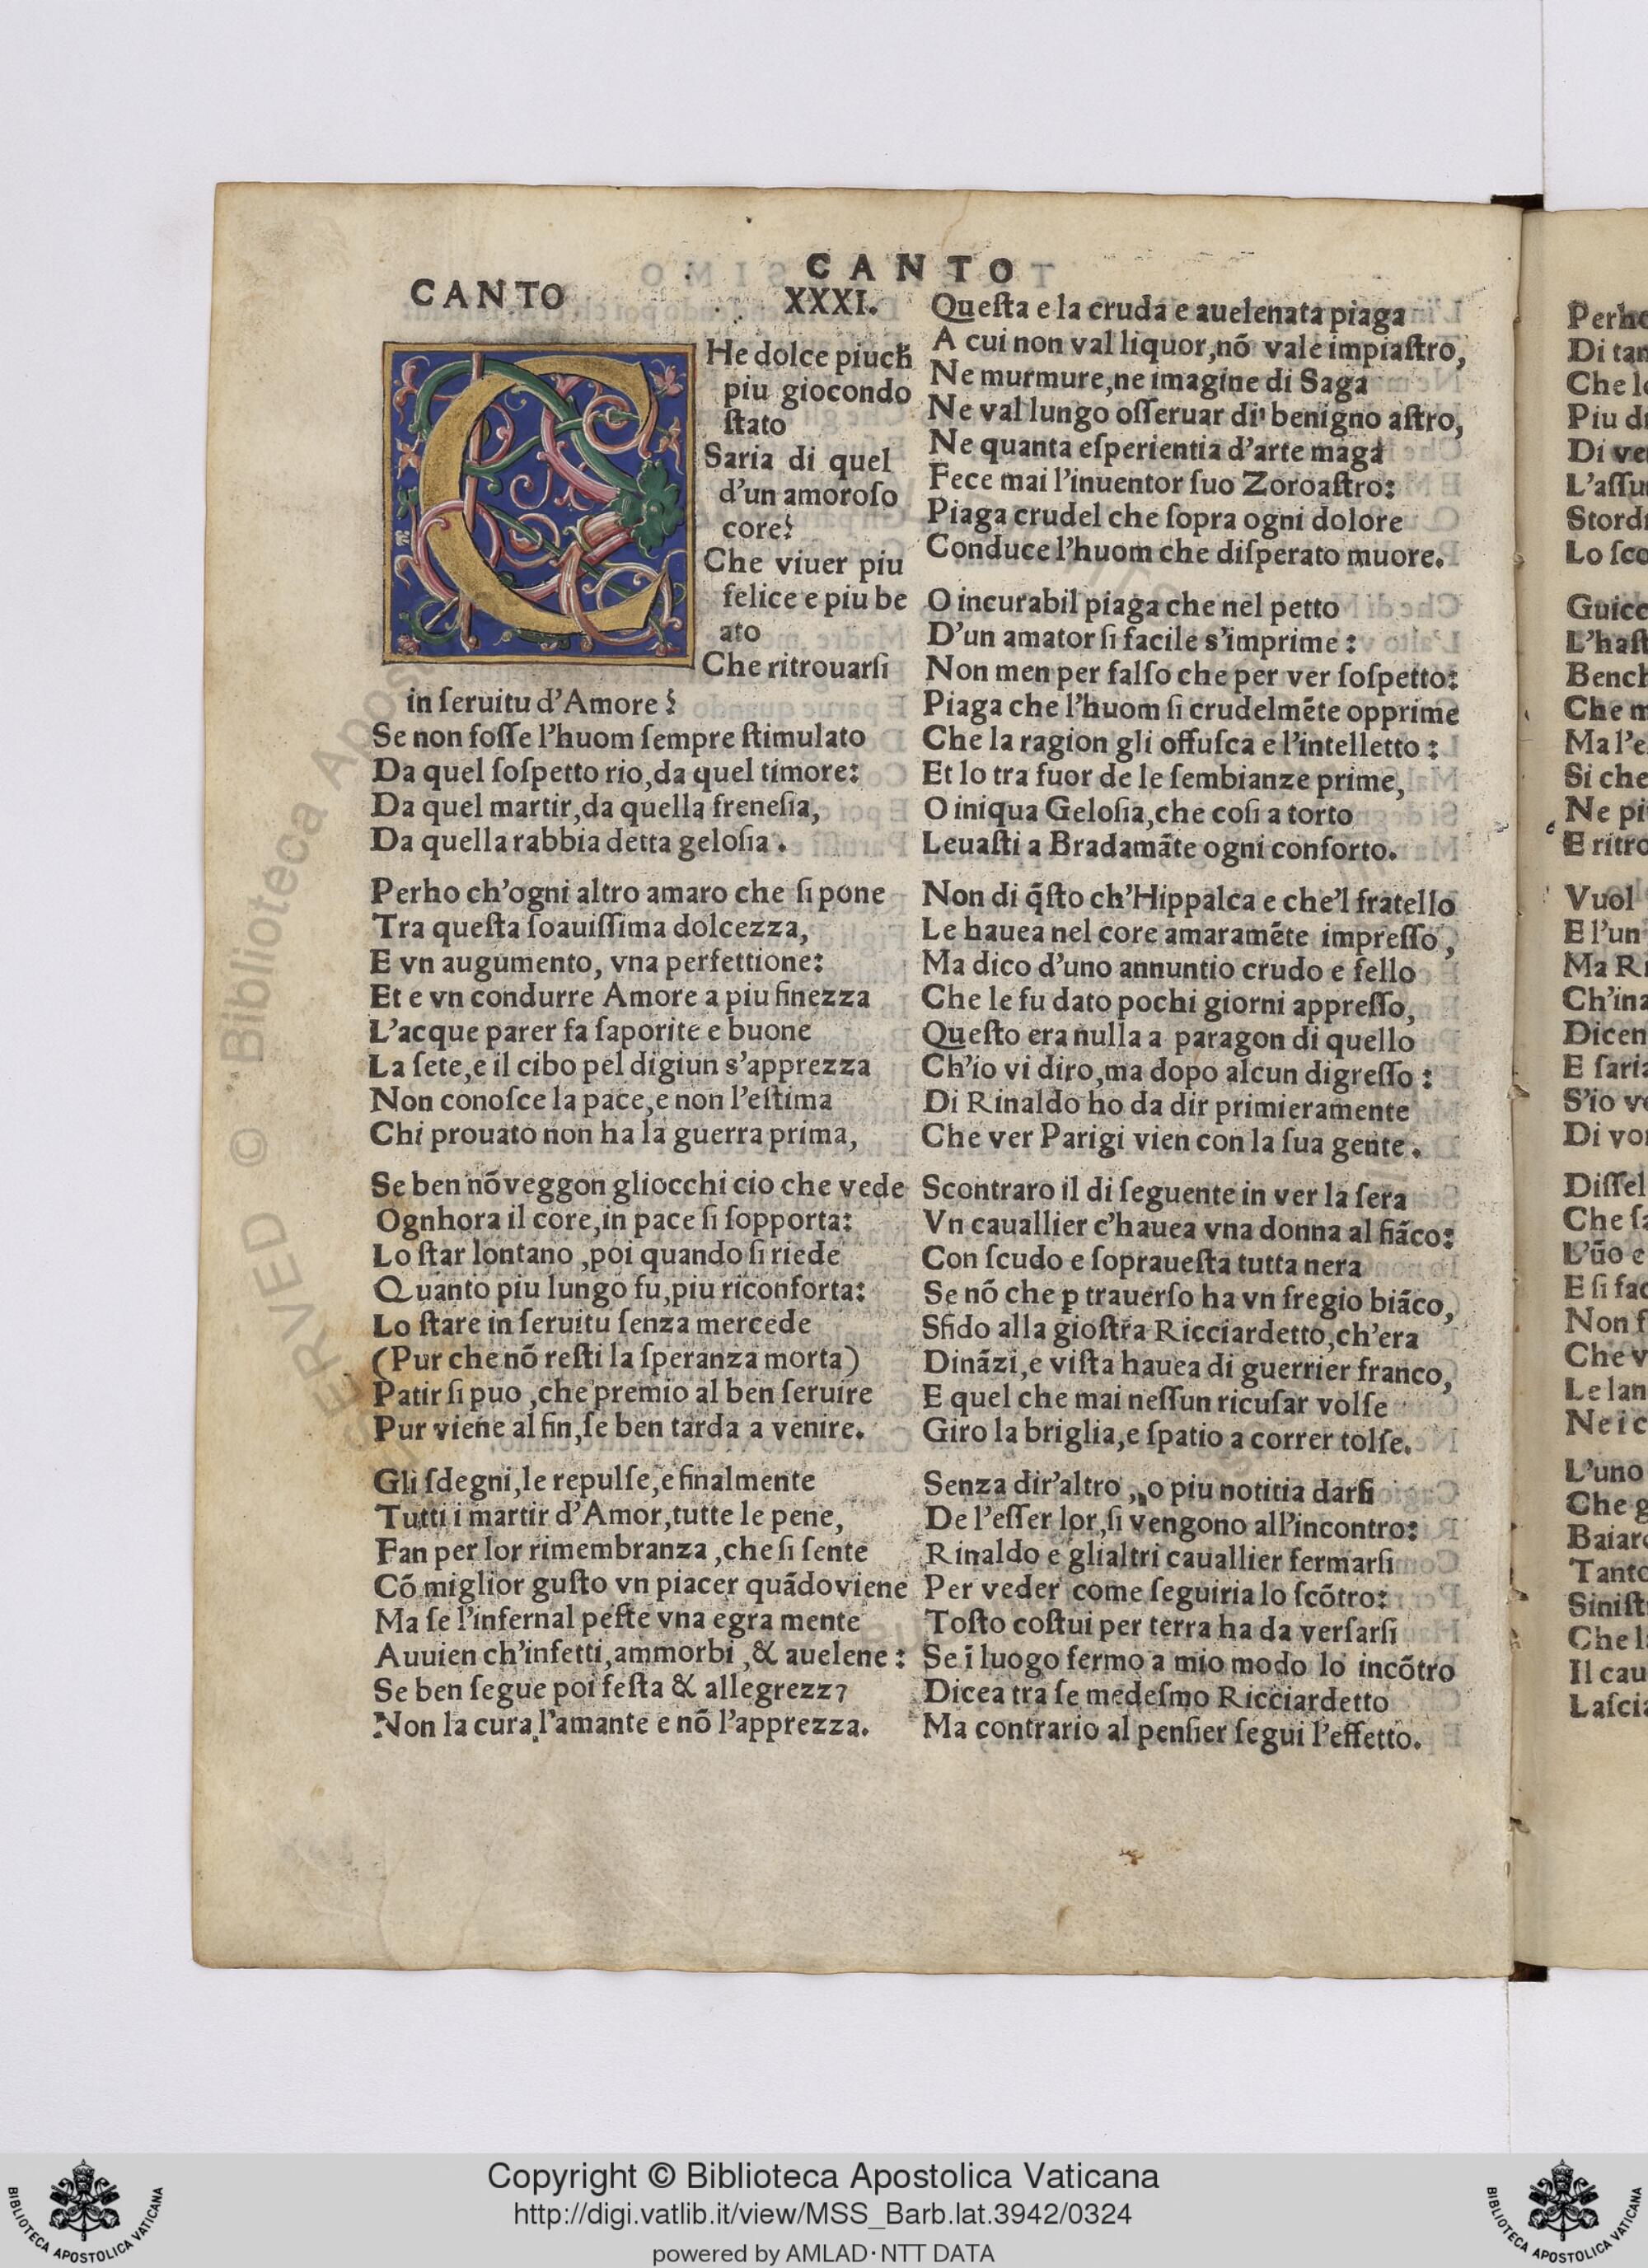 CANTO
CANTO XXXI.
CHe dolce piu ch̃
piu giocondo
ſtato
Saria di quel
d'un amoroſo
core?
Che viuer piu
felice e piu be
ato
Che ritrouarſi
in ſeruitu d'Amore?
Se non foſſe l'huom ſempre ſtimulato
Da quel ſoſpetto rio,da quel timore:
Da quel martir,da quella freneſia,
Da quella rabbia detta geloſia.
Perho ch'ogni altro amaro che ſi pone
Tra queſta ſoauiſſima dolcezza,
E vn augumento, vna perfettione:
Et e vn condurre Amore a piu finezza
L'acque parer fa ſaporite e buone
La ſete,e il cibo pel digiun s'apprezza
Non conoſce la pace,e non l'eſtima
Chi prouato non ha la guerra prima,
Se ben nõ veggon gliocchi cio che vede
Ognhora il core,in pace ſi ſopporta:
Lo ſtar lontano ,poi quando ſi riede
Quanto piu lungo fu,piu riconforta:
Lo ſtare in ſeruitu ſenza mercede
(Pur che nõ reſti la ſperanza morta)
Patir ſi puo ,che premio al ben ſeruire
Pur viene al fin,ſe ben tarda a venire.
Gli ſdegni,le repulſe,e finalmente
Tutti i martir d'Amor,tutte le pene,
Fan per lor rimembranza ,che ſi ſente
Cõ miglior guſto vn piacer quãdo viene
Ma ſe l'infernal peſte vna egra mente
Auuien ch'infetti,ammorbi ,& auelene:
Se ben ſegue poi feſta & allegrezza
Non la cura l'amante e nõ l'apprezza.
Queſta e la cruda e auelenata piaga
A cui non val liquor,nõ vale impiaſtro,
Ne murmure,ne imagine di Saga
Ne val lungo oſſeruar di benigno aſtro,
Ne quanta eſperientia d'arte maga
Fece mai l'inuentor ſuo Zoroaſtro:
Piaga crudel che ſopra ogni dolore
Conduce l'huom che diſperato muore.
O incurabil piaga che nel petto
D'un amator ſi facile s'imprime:
Non men per falſo che per ver ſoſpetto:
Piaga che l'huom ſi crudelmẽte opprime
Che la ragion gli offuſca e l'intelletto:
Et lo tra fuor de le ſembianze prime,
O iniqua Geloſia,che coſi a torto
Leuaſti a Bradamãte ogni conforto.
Non di q̃ſto ch'Hippalca e che'l fratello
Le hauea nel core amaramẽte impreſſo,
Ma dico d'uno annuntio crudo e fello
Che le fu dato pochi giorni appreſſo,
Queſto era nulla a paragon di quello
Ch'io vi diro,ma dopo alcun digreſſo:
Di Rinaldo ho da dir primieramente
Che ver Parigi vien con la ſua gente.
Scontraro il di ſeguente in ver la ſera
Vn cauallier c'hauea vna donna al fiãco:
Con ſcudo e ſoprauеſta tutta nera
Se nõ che ꝑ trauerſo ha vn fregio biãco,
Sfido alla gioſtra Ricciardetto,ch'era
Dinãzi,e viſta hauea di guerrier franco,
E quel che mai neſſun ricuſar volſe
Giro la briglia,e ſpatio a correr tolſe.
Senza dir'altro ,o piu notitia darſi
De l'eſſer lor,ſi vengono all'incontro:
Rinaldo e glialtri cauallier fermarſi
Per veder come ſeguiria lo ſcõtro:
Toſto coſtui per terra ha da verſarſi
Se ĩ luogo fermo a mio modo lo incõtro
Dicea tra ſe medeſmo Ricciardetto
Ma contrario al penſier ſegui l'effetto.
Perho
Di tan
Che l
Piu di
Di ve
L'aſſu
Stordi
Lo ſco
Guicc
L'haſt
Bench
Che m
Ma l'e
Si che
Ne pi
E ritro
Vuol
E l'un
Ma Ri
Ch'ina
Dicen
E ſaria
S'io v
Di vo
Diſſel
Che ſa
L'ũo e
E ſi fac
Non f
Che v
Le lan
Ne i c
L'uno
Che g
Baiard
Tanto
Siniſt
Che l
Il cau
Laſcia
Copyright © Biblioteca Apostolica Vaticana
http://digi.vatlib.it/view/MSS_Barb.lat.3942/0324
powered by AMLAD·NTT DATA
BIBLIOTECA APOSTOLICA VATICANA
BIBLIOTECA APOSTOLICA VATICANA